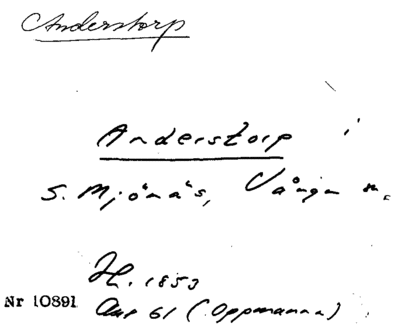 Anderstorp
Anderstorp i
S. Mjönäs, Vånga sn.
H. 1853
Nr 10891
Aur 61 (Oppmanna)